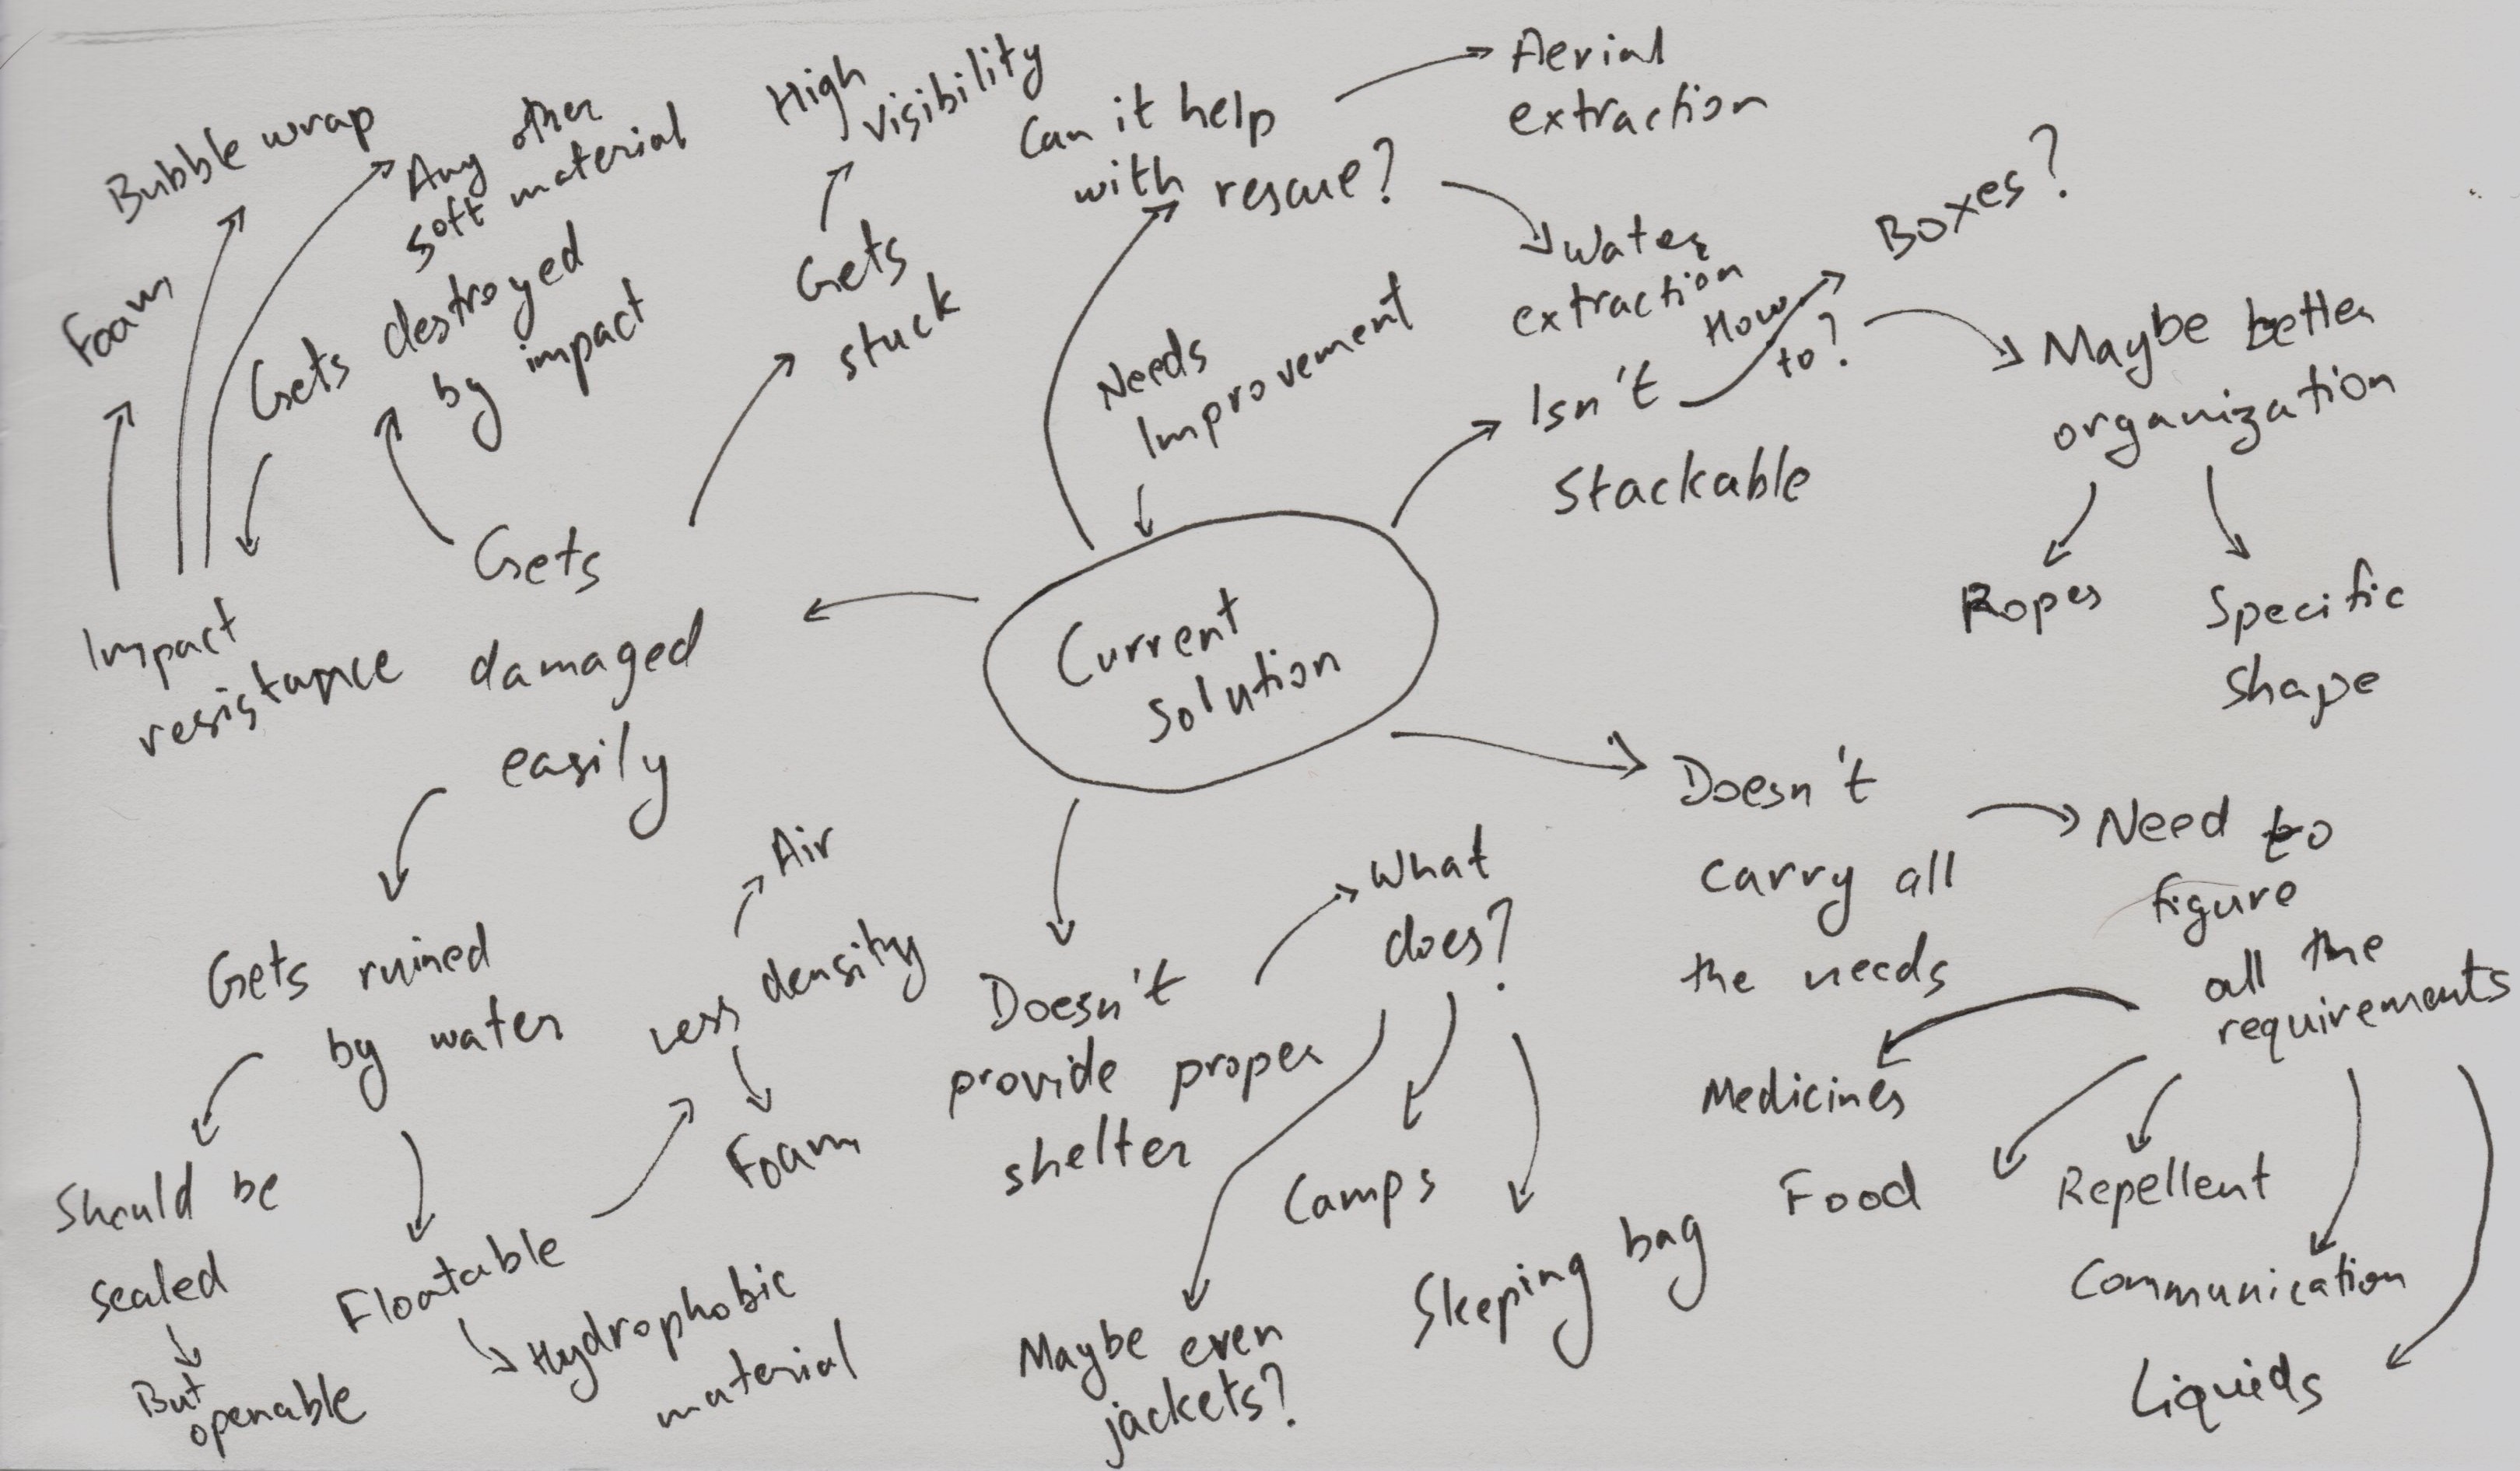 Bubble wrap
Any other
soft material
Foam
Gets destroyed
by impact
Impact
resistance
High
visibility
Gets
stuck
Can it help
with rescue?
Aerial
extraction
Water
extraction
Needs
Improvement
Isn't
Stackable
How
to?
Boxes?
Maybe better
organization
Ropes
Specific
Shape
Gets
damaged
easily
Current
Solution
Doesn't
carry all
the needs
Need to
figure
all the
requirements
Medicines
Food
Repellent
Communication
Liquids
Gets ruined
by water
Should be
sealed
But
openable
Floatable
Hydrophobic
material
Less density
Air
Foam
Doesn't
provide proper
shelter
What
does?
Camps
Sleeping bag
Maybe even
jackets?